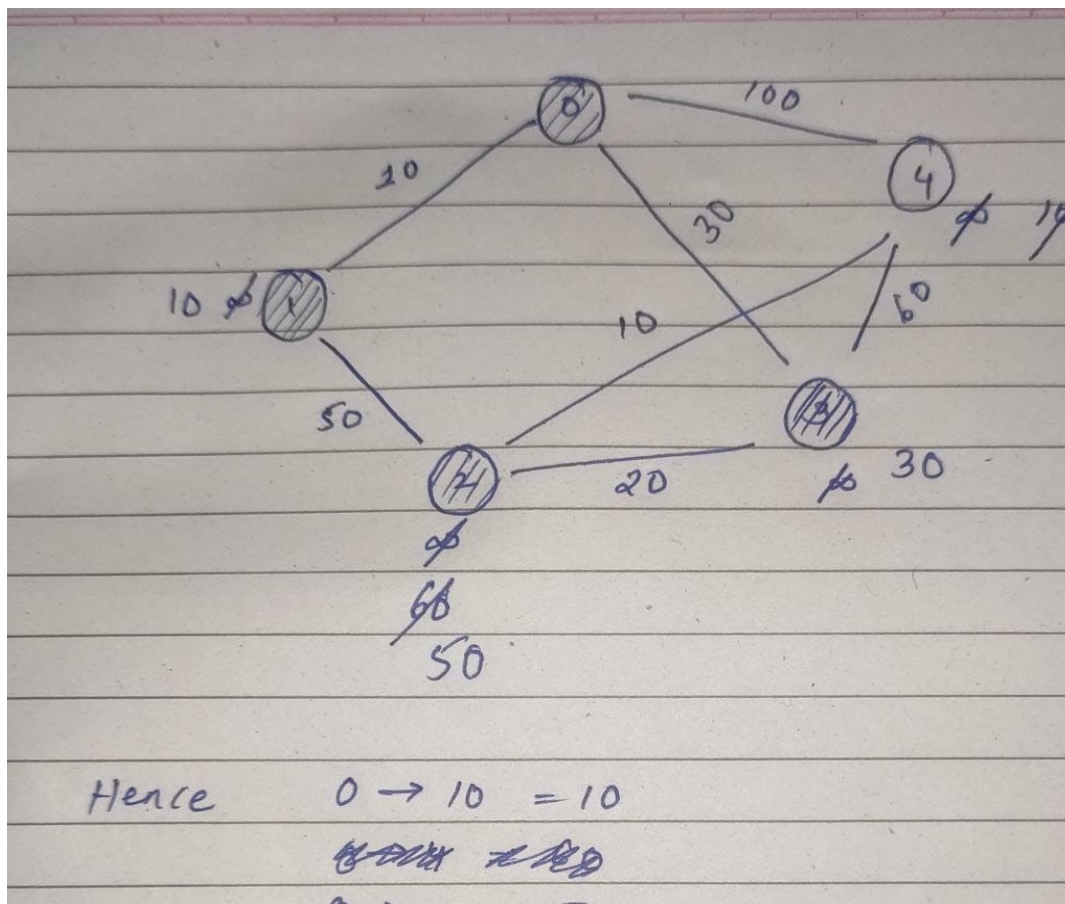 0
100
4
10
30
∞
10 ∞ 1
10
60
50
3
2
20
∞ 30
∞
60
50
Hence 0 → 10 = 10